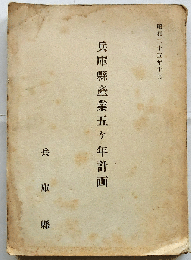 昭和二十五年十二
兵庫縣産業五ヶ年計画
兵庫縣